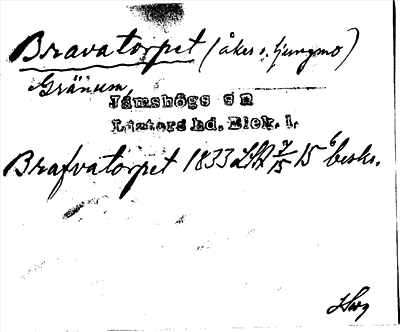 Bravatorpet (åker o. ljungmo)
Gränum,
Jämshögs sn
Listers hd. Blek. l.
Brafvatorpet 1833 LSA 7/15 15⁶ beskr.